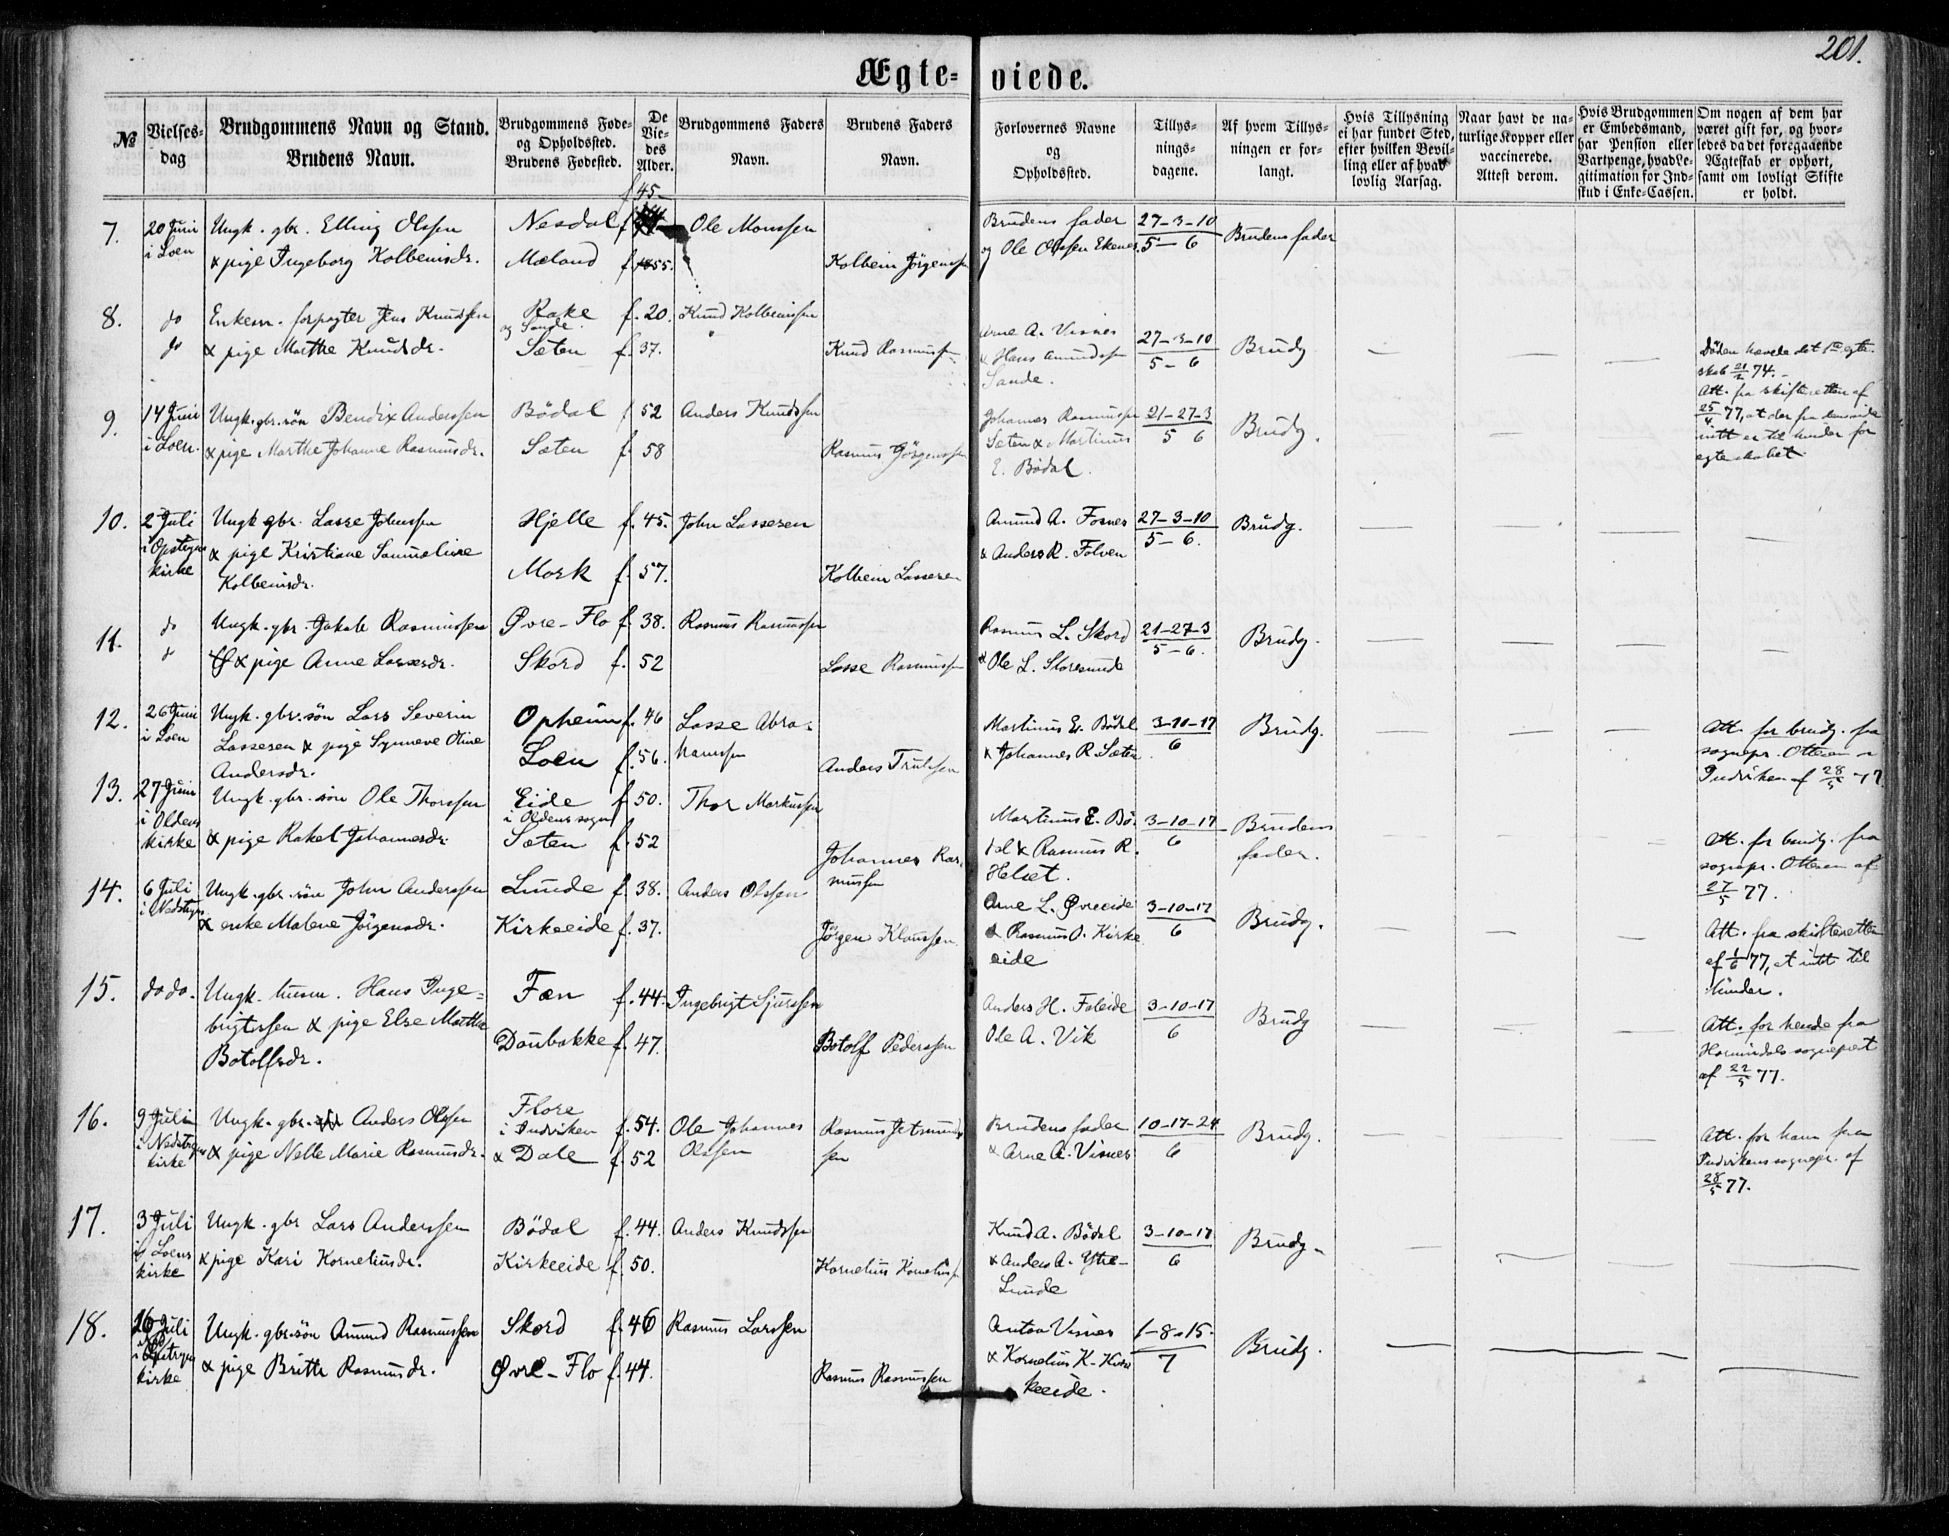 201.
Ægte- viede.
№
Vielses-
dag
Brudgommens Navn og Stand.
Brudens Navn.
Brudgommens Føde-
og Opholdssted.
Brudens Fødested.
De
Vie-
des
Alder.
Brudgommens Faders
Navn.
Brudens Faders
Navn.
Forlovernes Navne
og
Opholdssted.
Tillys-
nings-
dagene.
Af hvem Tillys-
ningen er for-
langt.
Hvis Tillysning
ei har fundet Sted,
efter hvilken Bevil-
ling eller af hvad
lovlig Aarsag.
Naar havt de na-
turlige Kopper eller
vaccinerede.
Attest derom.
Hvis Brudgommen
er Embedsmand,
har Pension eller
Vartpenge, hvad Le-
gitimation for Ind-
skud i Enke-Cassen.
Om nogen af dem har
været gift før, og hvor-
ledes da det foregaaende
Ægteskab er ophørt,
samt om lovligt Skifte
er holdt.
7. 20 Juni Ungk. gbr. Elling Olssen Nesdal f. 45 Ole Monssen Brudens fader 27-3-10 Brudens fader
i Loen & pige Ingeborg Kolbeinsdr. Mæland f. 55. Kolbein Jörgenssen og Ole Olssen Ekenes. 5-6
8. do Enkem. forpagter Jens Knudssen Rake f. 20. Knud Kolbeinssen Arne A. Visnes 27-3-10 Brudg
og Sande
do & pige Marthe Knudsdr. Sæten f. 37. Knud Rasmussen & Hans Amundssen 5-6
Sande.
Döden hævede det 1ste egte-
skab 74. -
Att. fra skifteretten af
25/4 77, at der fra dens side
intt er til hinder for
egteskabet
9. 14 Juni Ungk. gbr. sön Bendix Anderssen Bödal f 52 Anders Knudssen Johannes Rasmussen 21-27-3 Brudg.
i Loen. & pige Marthe Johanne Rasmusdr. Sæten f. 58 Rasmus Jörgenssen Sæten & Martinus 5 6
E. Bödal.
10. 2 Juli Ungk gbr. Lasse Johnssen Hjelle f. 45. John Lassesen Amund A. Fosnes 27-3-10 Brudg.
i Opstryns & pige Kristiane Sammeline & Anders R. Folven 5-6.
kirke Kolbeinsdr. Mork f. 57. Kolbein Lassesen
11. do Ungk. gbr. Jakob Rasmussen Øvre-Flo f. 38. Rasmus Rasmussen Rasmus L. Skord 21-27-3 Brudg.
do & pige Anne Lassesdr. Skord f. 52 Lasse Rasmussen & Ole L. Storesunde 5-6.
12. 26 Juni Ungk. gbr. sön Lars Severin Opheim f. 46 Lasse Abra- Martinus E. Bödal 3-10-17 Brudg.
i Loen Lassesen & pige Synneve Oline Loen f. 56. hamssen Anders Trulssen & Johannes R. Sæten. 6
Andersdr.
Att. for brudg. fra
sognepr. Ottesen i
Indviken af 28/5 77
13. 27 Juni Ungk. gbr. sön Ole Thorssen Eide f. 50. Thor Markussen Martinus E. Bö- 3-10-17 Brudens
i Oldens i Oldens sogn
kirke & pige Rakel Johannesdr. Sæten f. 52 Johannes Ras- dal & Rasmus R. 6 fader.
mussen Helset.
Att. for brudg. fra
sognepr. Ottesen af
27/5 77.
14. 6 Juli Ungk. gbr. sön John Anderssen Lunde f. 38. Anders Olssen Arne L. Øvreeide 3-10-17 Brudg.
i Nedstryns & enke Malene Jörgensdr. Kirkeeide f. 37. Jörgen Klaussen & Rasmus O. Kirke 6
eide
Att. fra skifteretten
af 1/6 77, at intt til
hinder.
15. do do. Ungk. husm. Hans Inge- Fæn f. 44. Ingebrigt Sjurssen Anders H. Foleide 3-10-17 Brudg
brigtssen & pige Else Marthe Daubakke f. 47. Botolf Pederssen Ole A. Vik 6
Botolfsdr.
Att. for hende fra
Hornindals sogneprest
af 22/5 77.
16. 9 Juli Ungk. gbr. Anders Olssen Flore f. 54. Ole Johannes Rasmus Jetmunds- Brudens fader 10-17-24 Brudg.
i Indviken
i Nedstryns & pige Nelle Marie Rasmusdr. & Dale f. 52 Olssen sen & Arne A. Visnes 6
kirke
Att. for ham fra
Indvikens sognepr. af
28/5 77.
17. 3 Juli Ungk. gbr Lars Anderssen Bödal f. 44. Anders Knudssen Knud A. Bödal 3-10-17 Brudg.
i Loens & pige Kari Korneliusdr. Kirkeeide f. 50. Kornelius Korneliussen & Anders A. Ytre- 6
kirke Lunde
18. 16 Juli Ungk. gbr. sön Amund Rasmussen Skord f. 46 Rasmus Larssen Anton Visnes 1-8-15. Brudg.
kirke & pige Britte Rasmusdr. Øvre-Flo f. 44. Rasmus Rasmussen & Kornelius K. Kir- 7
keeide.